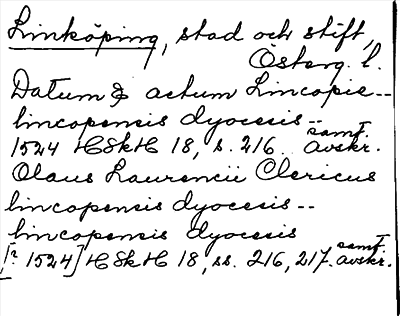 Linköping, stad och stift,
Österg. l.
Datum & actum Lincopie--
lincopensis dyocesis--
1524 HSkH 18, s. 216. samt. avskr.
Olaus Laurencii Clericus
lincopensis dyocesis--
lincopensis dyocesis
[? 1524] HSkH 18, ss. 216, 217. samt. avskr.